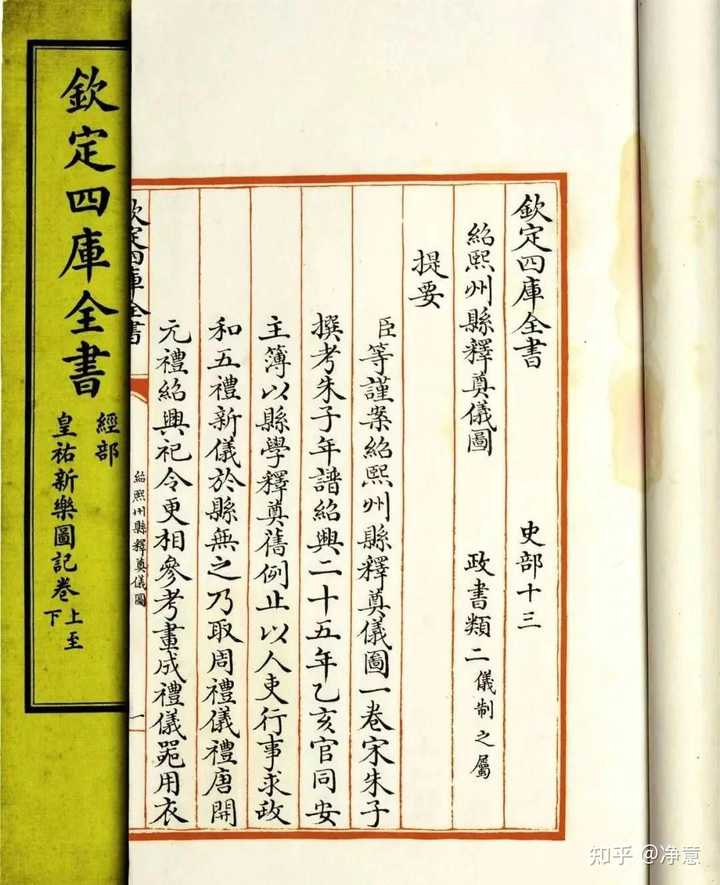 欽定四庫全書 史部十三
紹熙州縣釋奠儀圖 政書類二儀制之屬
提要
臣等謹案紹熙州縣釋奠儀圖一卷宋朱子
撰考朱子年譜紹興二十五年乙亥官同安
主簿以縣學釋奠舊例止以人吏行事求政
和五禮新儀於縣無之乃取周禮儀禮唐開
元禮紹興祀令更相參考畫成禮儀器用衣
欽定四庫全書 紹熙州縣釋奠儀圖 一
欽定四庫全書
經部
皇祐新樂圖記卷上至下
知乎 @净意